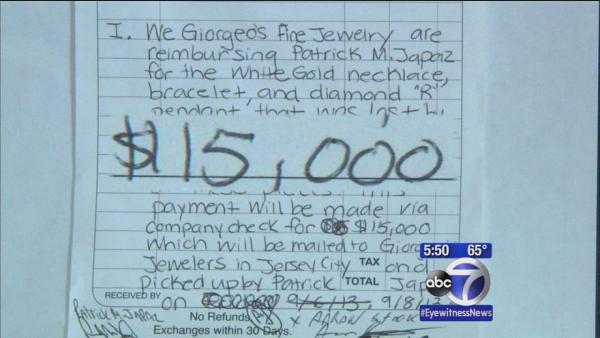 I. We Giorgeo's Fine Jewelry are
reimbursing Patrick M. Japaz
for the White Gold necklace,
bracelet, and diamond "R"
pendant that was lost
$15,000
payment will be made via
company check for $15,000
which will be mailed to
Jewelers in Jersey City TAX on a
picked up by Patrick TOTAL
RECEIVED BY on 9/6/13 9/8/13
Patrick M. Japaz No Refunds x
Exchanges within 30 Days.
5:50 65°
abc 7
#EyewitnessNews